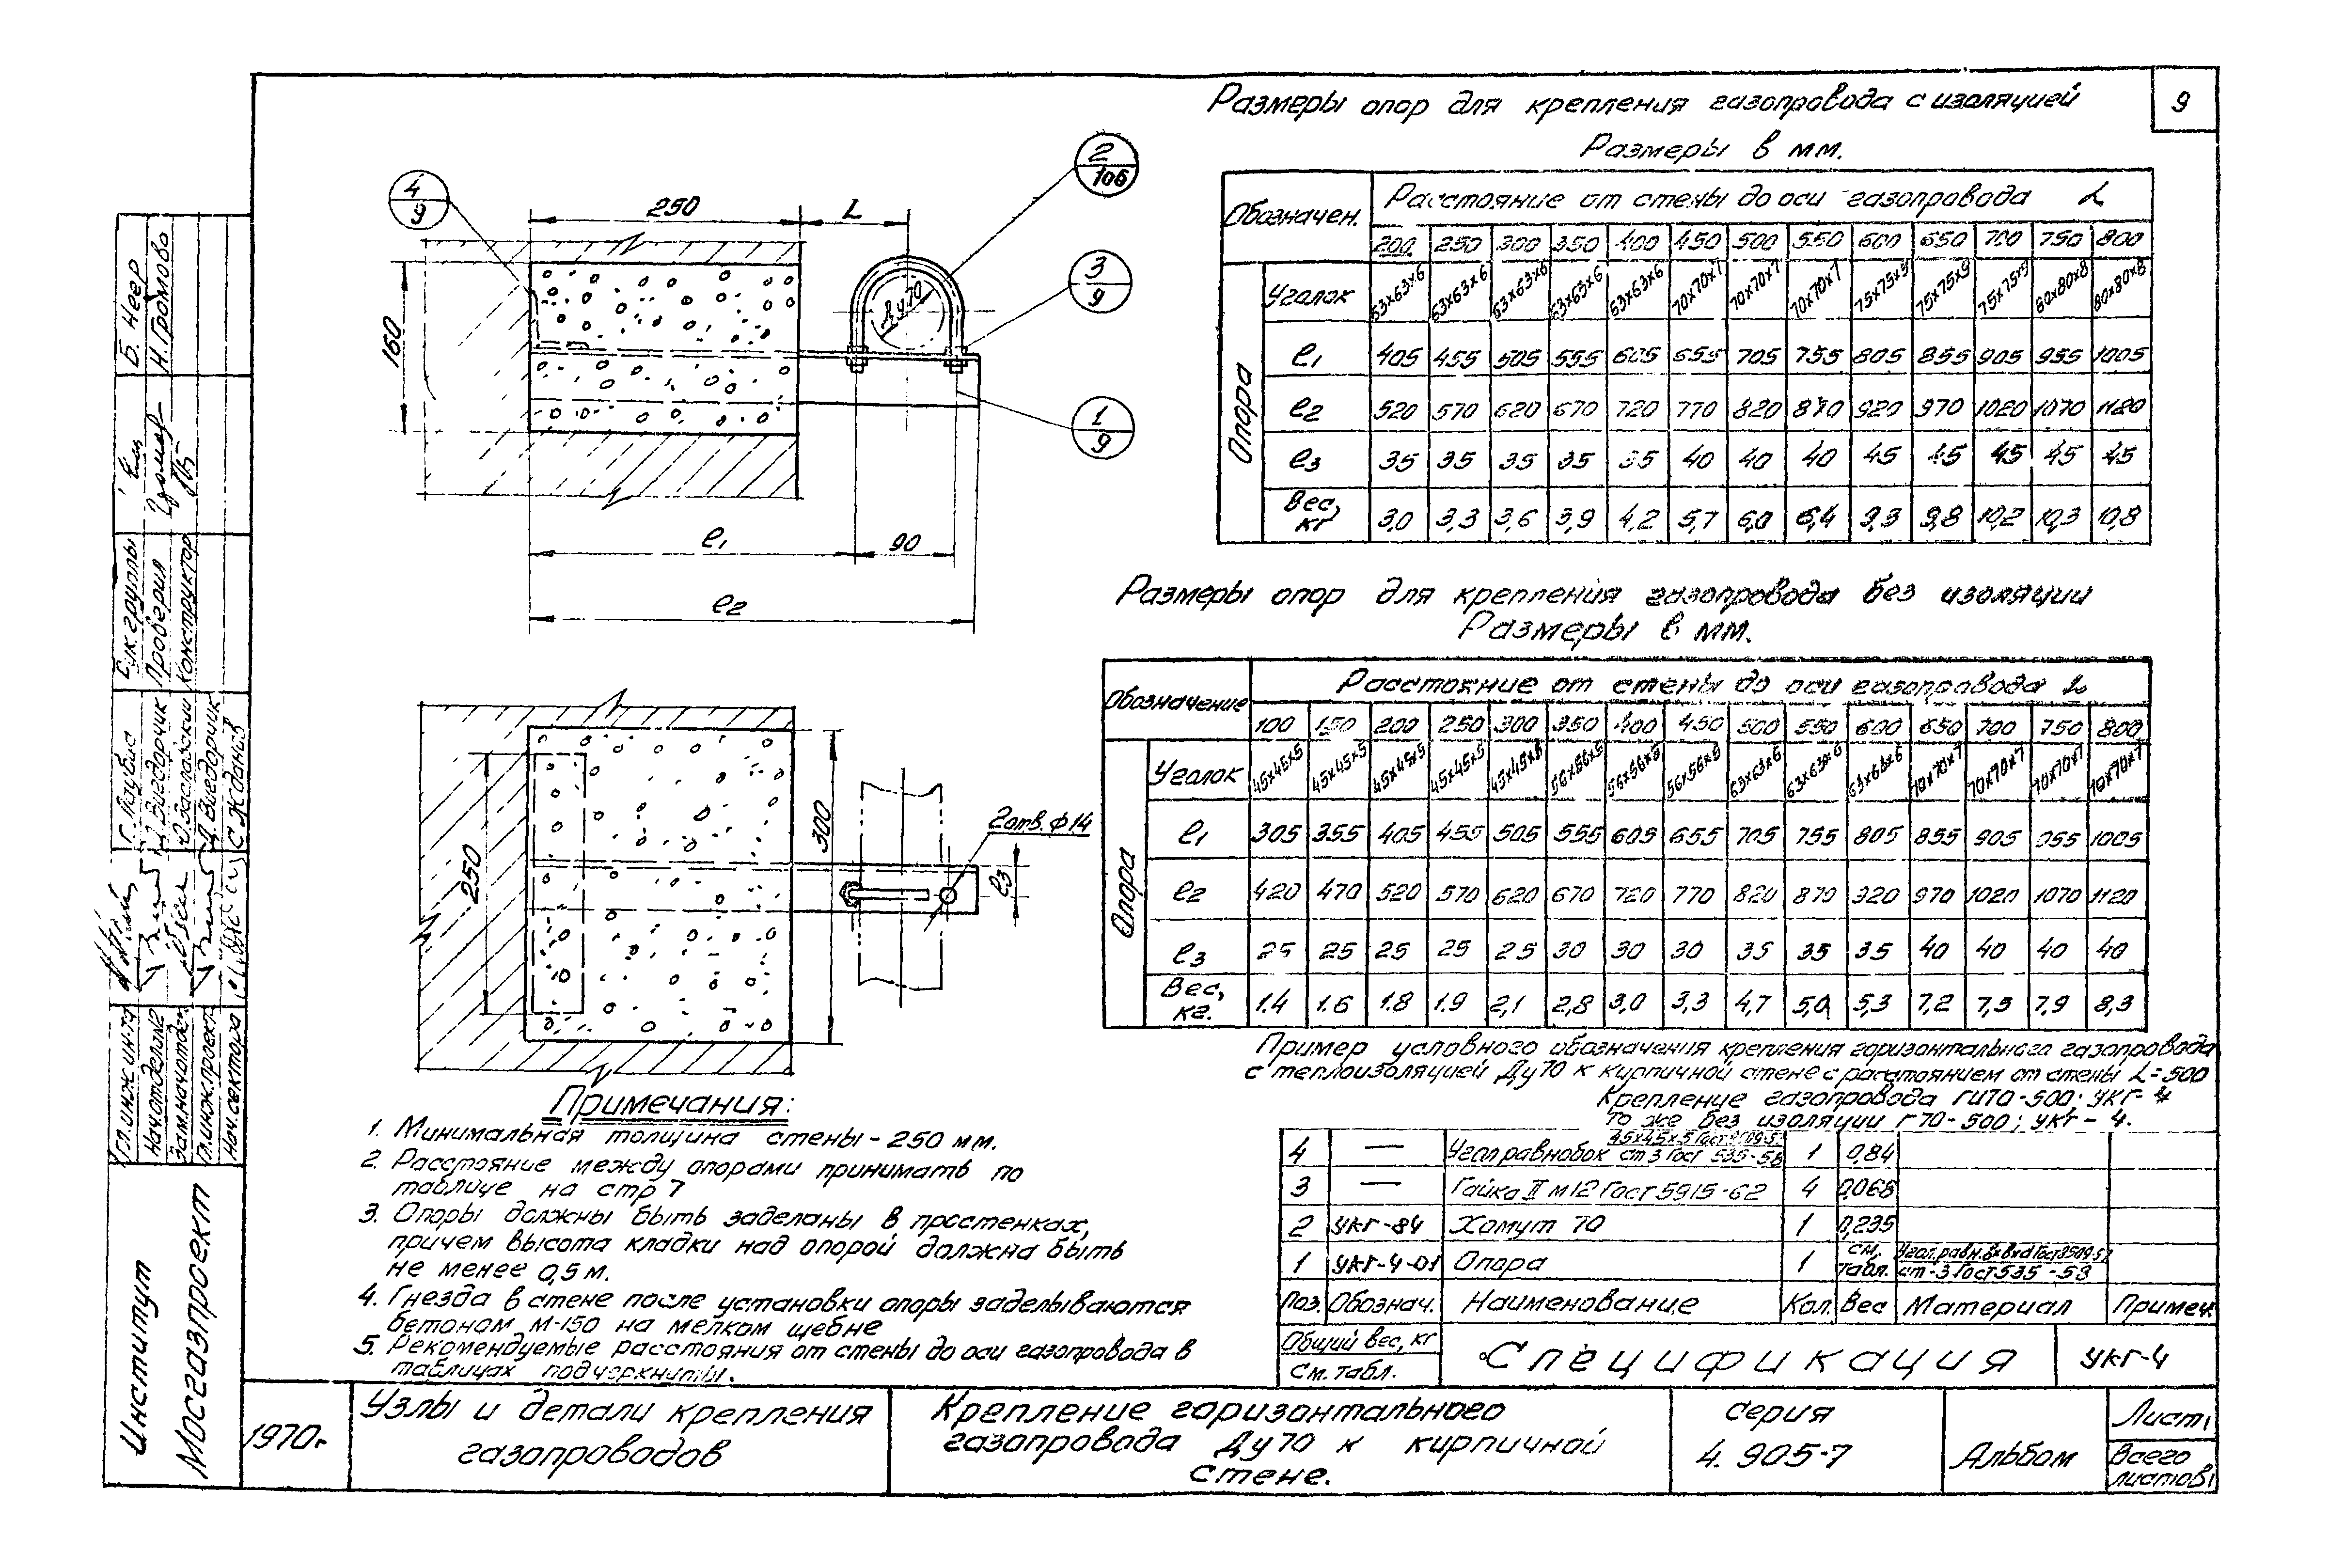 9
Размеры опор для крепления газопровода с изоляцией
Размеры в мм.
Обозначен. Расстояние от стены до оси газопровода L
200 250 300 350 400 450 500 550 600 650 700 750 800
Опора
Уголок 63х63х6 63х63х6 63х63х6 63х63х6 63х63х6 70х70х7 70х70х7 70х70х7 75х75х9 75х75х9 75х75х9 80х80х8 80х80х8
ℓ1 405 455 505 555 605 655 705 755 805 855 905 955 1005
ℓ2 520 570 620 670 720 770 820 870 920 970 1020 1070 1120
ℓ3 35 35 35 35 35 40 40 40 45 45 45 45 45
Вес, кг 3,0 3,3 3,6 3,9 4,2 5,7 6,0 6,4 9,3 9,8 10,2 10,3 10,8
Размеры опор для крепления газопровода без изоляции
Размеры в мм.
Обозначение Расстояние от стены до оси газопровода L
100 150 200 250 300 350 400 450 500 550 600 650 700 750 800
Опора
Уголок 45х45х5 45х45х5 45х45х5 45х45х5 45х45х5 56х56х5 56х56х5 56х56х5 63х63х6 63х63х6 63х63х6 70х70х7 70х70х7 70х70х7 70х70х7
ℓ1 305 355 405 455 505 555 605 655 705 755 805 855 905 955 1005
ℓ2 420 470 520 570 620 670 720 770 820 870 920 970 1020 1070 1120
ℓ3 25 25 25 25 25 30 30 30 35 35 35 40 40 40 40
Вес, кг. 1.4 1.6 1.8 1.9 2,1 2,8 3,0 3,3 4,7 5,0 5,3 7,2 7,5 7,9 8,3
Пример условного обозначения крепления горизонтального газопровода
с теплоизоляцией Ду70 к кирпичной стене с расстоянием от стены L=500
Крепление газопровода ГИ70-500; УКГ-4
То же без изоляции Г70-500; УКГ-4.
4/9
250
L
2/106
3/9
1/9
Ду70
160
ℓ1
90
ℓ2
250
300
2отв.ф14
ℓ3
Примечания:
1. Минимальная толщина стены - 250 мм.
2. Расстояние между опорами принимать по
таблице на стр 7
3. Опоры должны быть заделаны в простенках,
причем высота кладки над опорой должна быть
не менее 0,5 м.
4. Гнезда в стене после установки опоры заделываются
бетоном М-150 на мелком щебне
5. Рекомендуемые расстояния от стены до оси газопровода в
таблицах подчеркнуты.
4 — Угол.равнобок 45х45х5 Гост 8509-5 ст 3 Гост 535-58 1 0,84
3 — Гайка II М12 Гост 5915-62 4 0,068
2 УКГ-84 Хомут 70 1 0,235
1 УКГ-4-01 Опора 1 см. табл. Угол.равн. вхвхd Гост 8509-57 ст-3 Гост 535-58
Поз. Обознач. Наименование Кол. Вес Материал Примеч.
Общий вес, кг
См. табл.
Спецификация
УКГ-4
1970г.
Узлы и детали крепления
газопроводов
Крепление горизонтального
газопровода Ду70 к кирпичной
стене.
серия
4.905-7
Альбом
Лист 1
Всего
листов 1
Институт
Мосгазпроект
Гл.инж.ин-та
Нач.отдела№2
Зам.нач.отдел.
Гл.инж.проект.
Нач.сектора
Ю.Заславский
С.Жданов
Рук.группы
Проверил
Конструктор
Б. Неер
Н.Громова